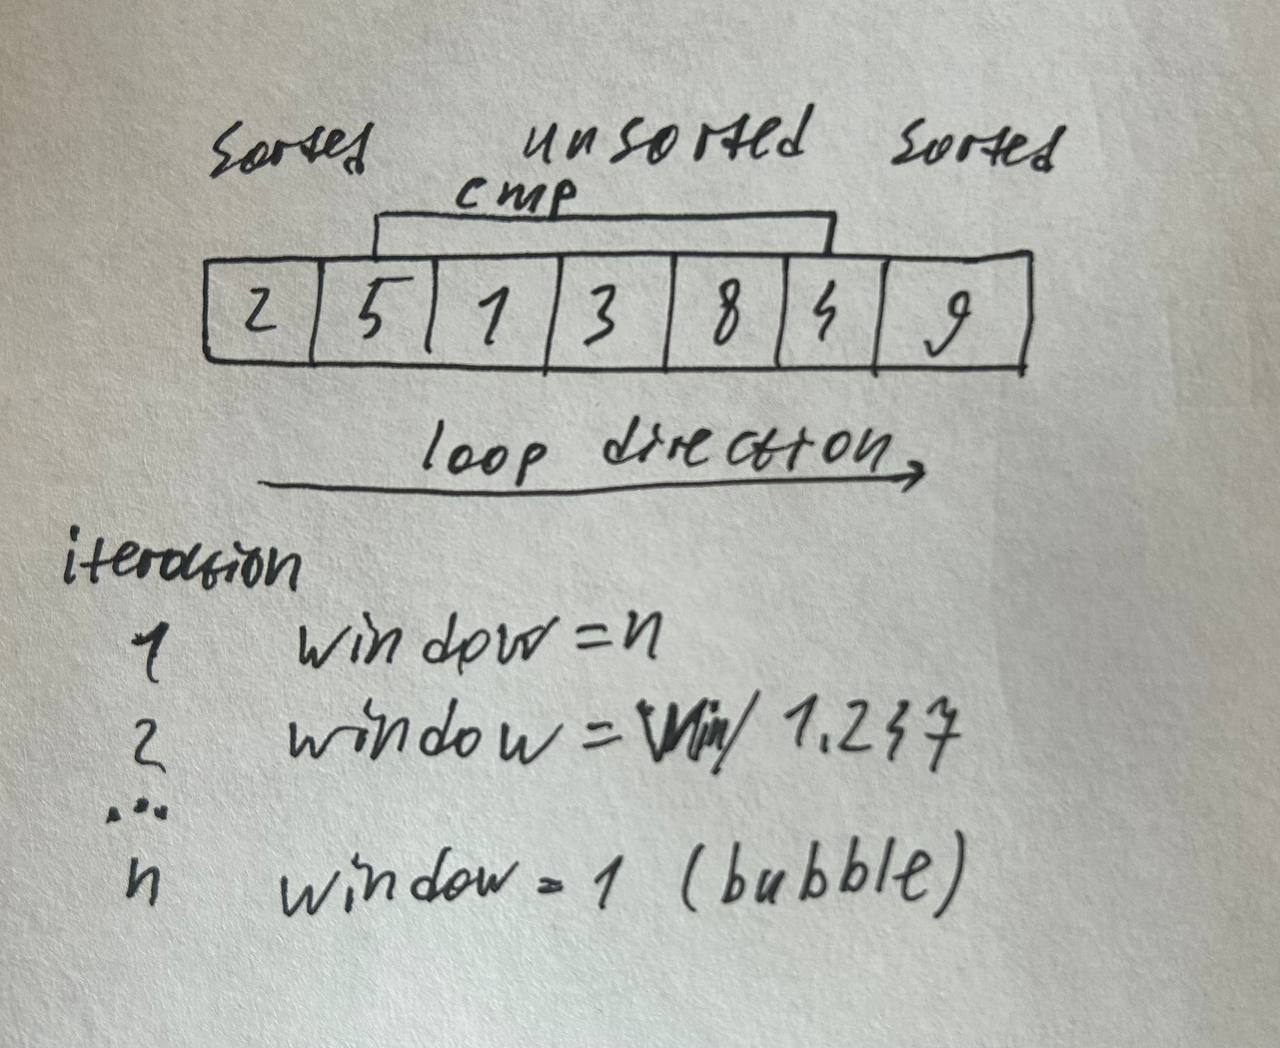 sorted unsorted sorted
cmp
2 5 1 3 8 4 9
loop direction
iteration
1 window = n
2 window = / 1.247
...
n window = 1 (bubble)